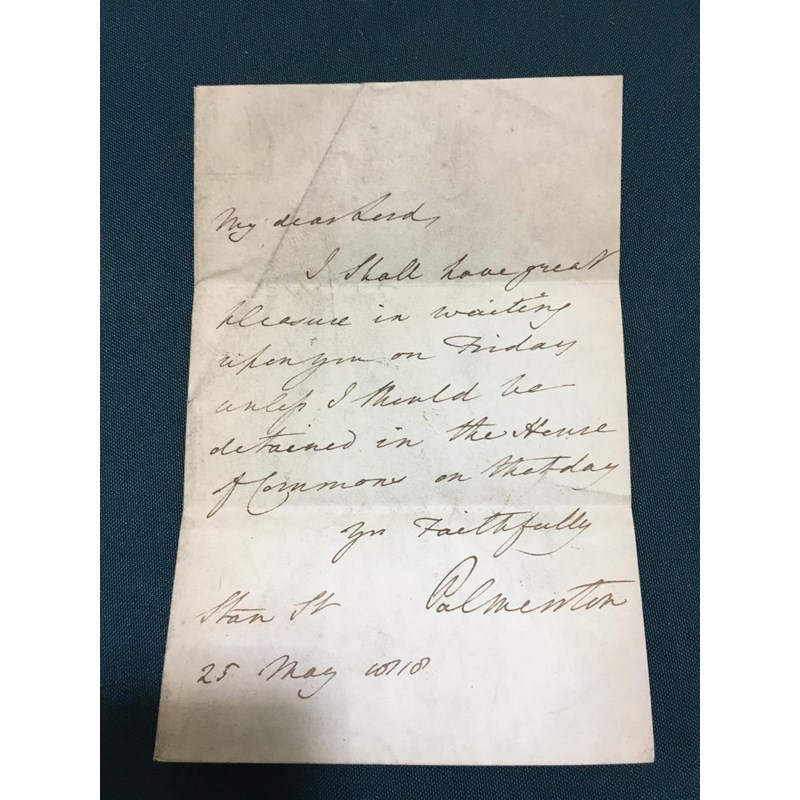 My dear Lord,
I Shall have great
pleasure in waiting
upon you on Friday
unless I should be
detained in the House
of Commons on that day
yrs Faithfully
Palmerston
Stan St
25 May 1818